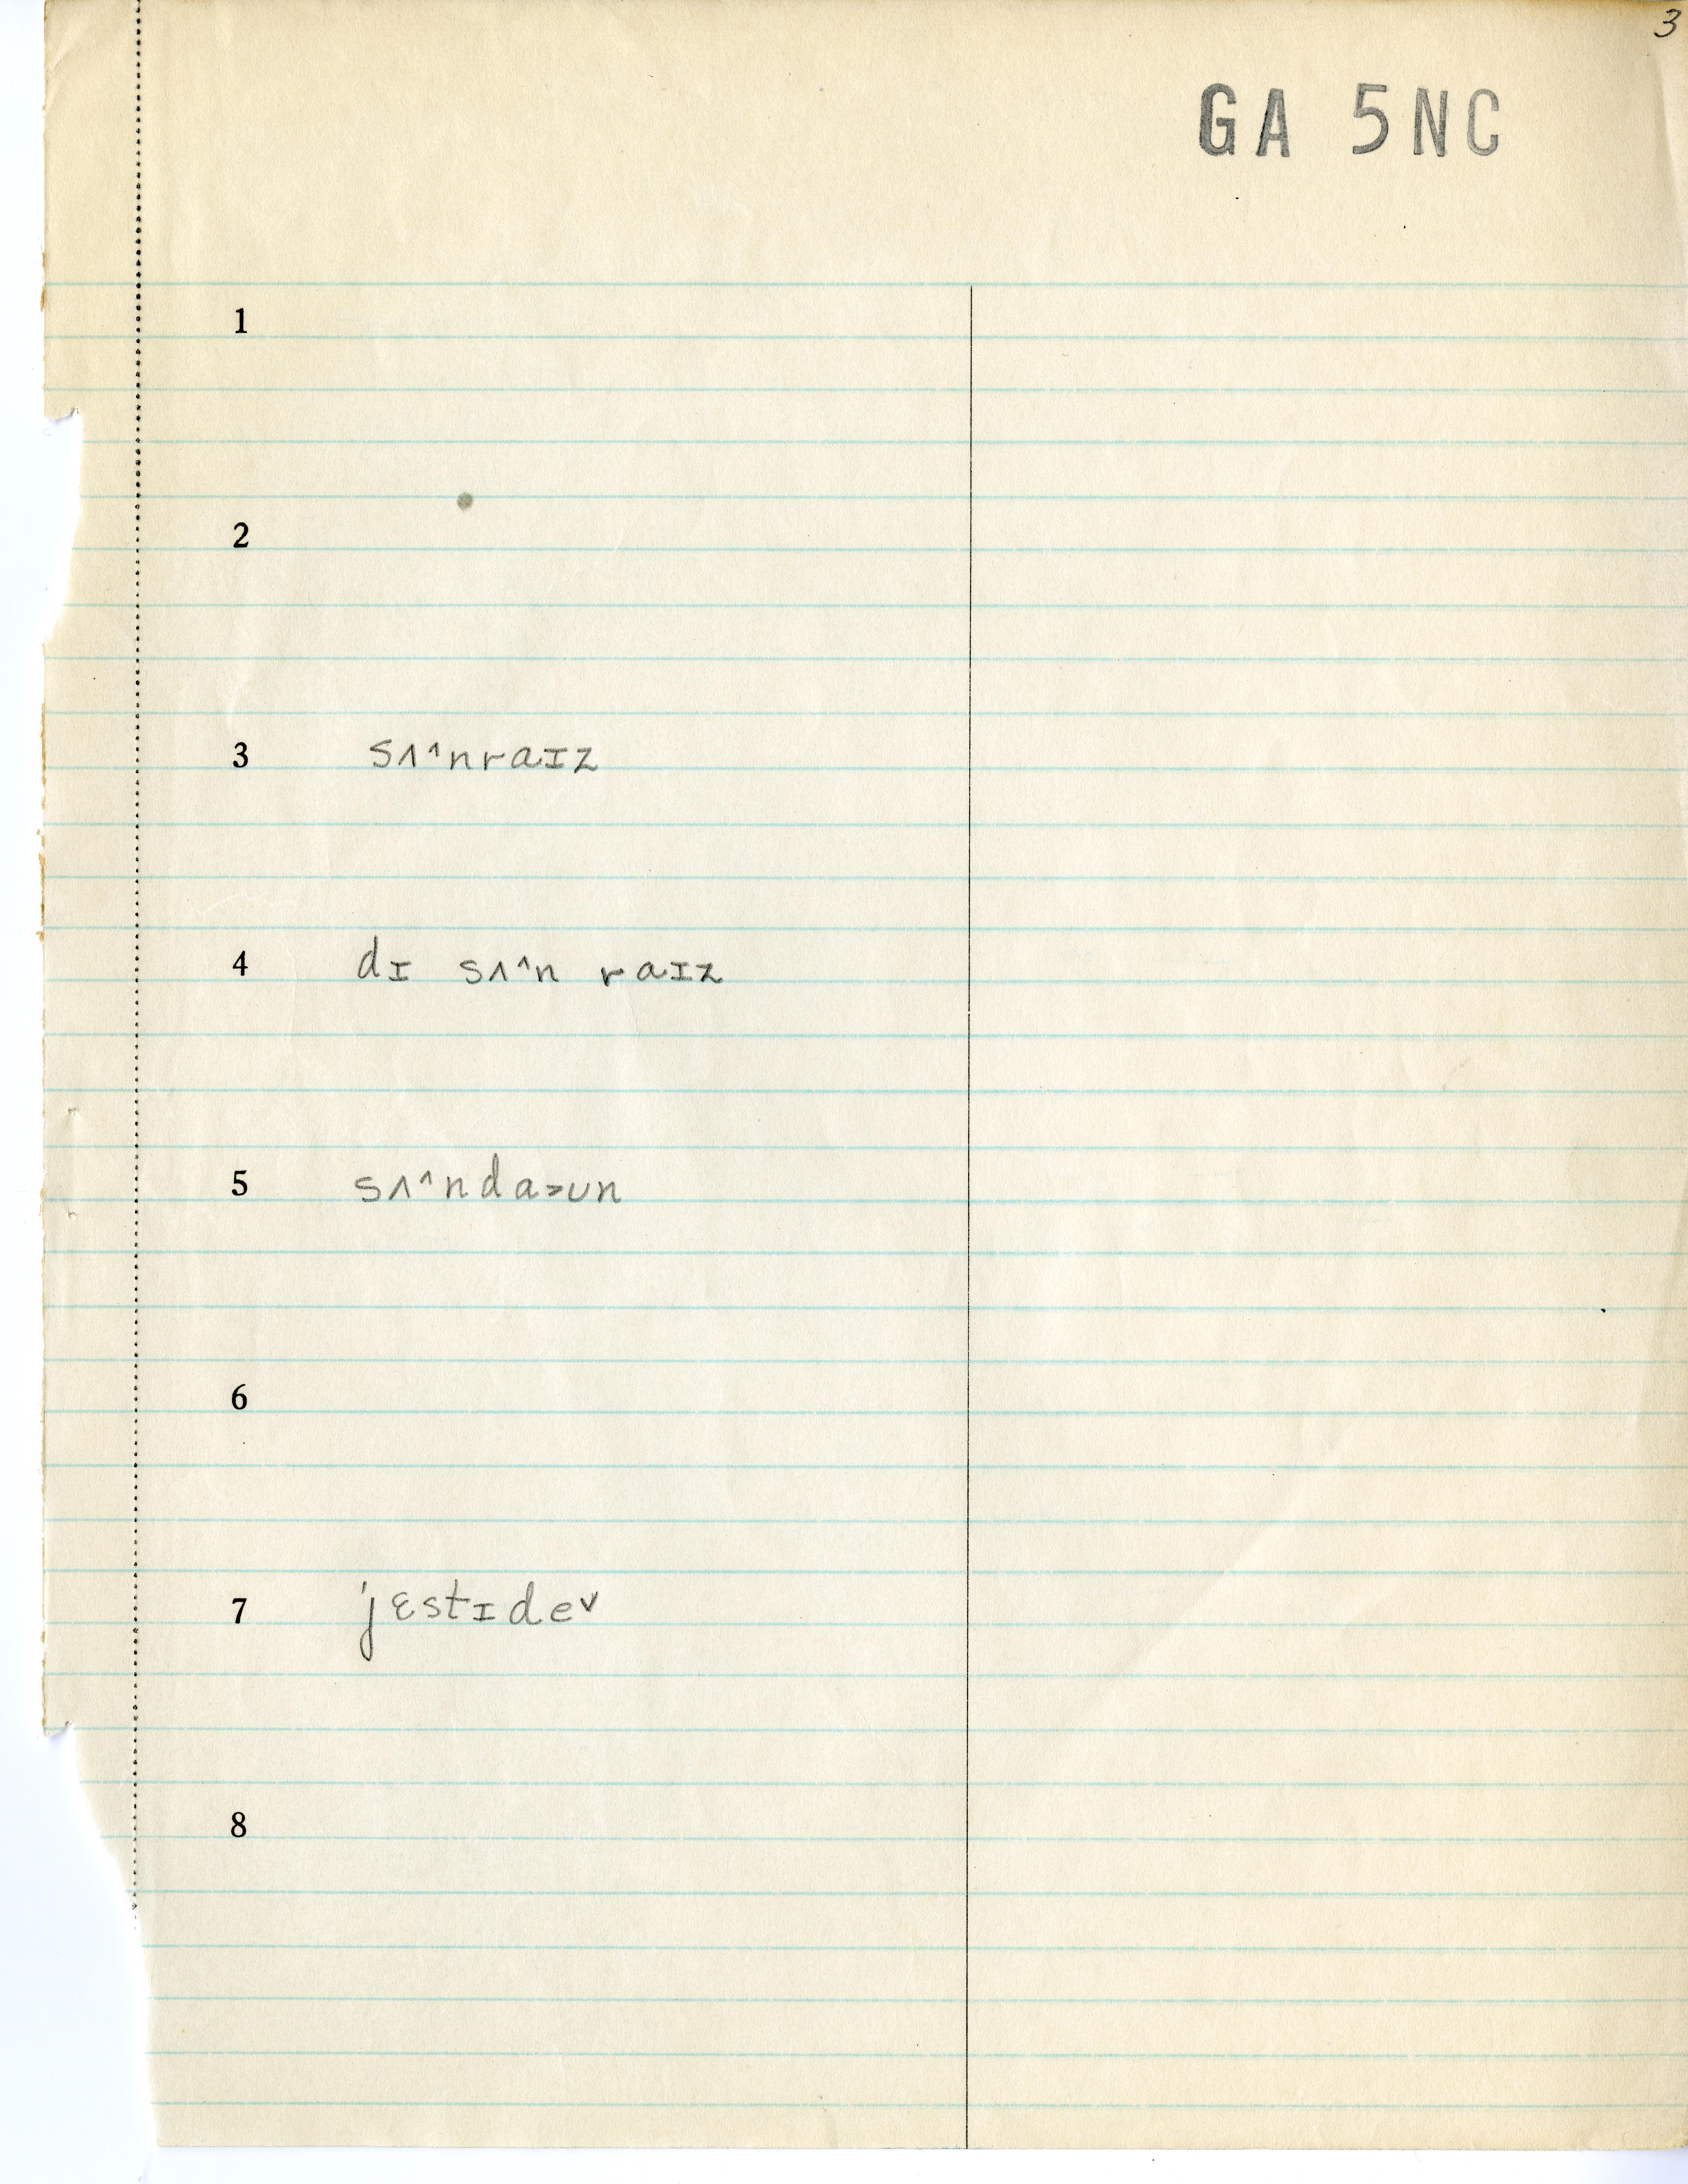 3
GA 5NC
1
2
3 sʌˆnraɪz
4 dɪ sʌˆn raɪz
5 sʌˆnda˃ʊn
6
7 jɛstɪdeˇ
8